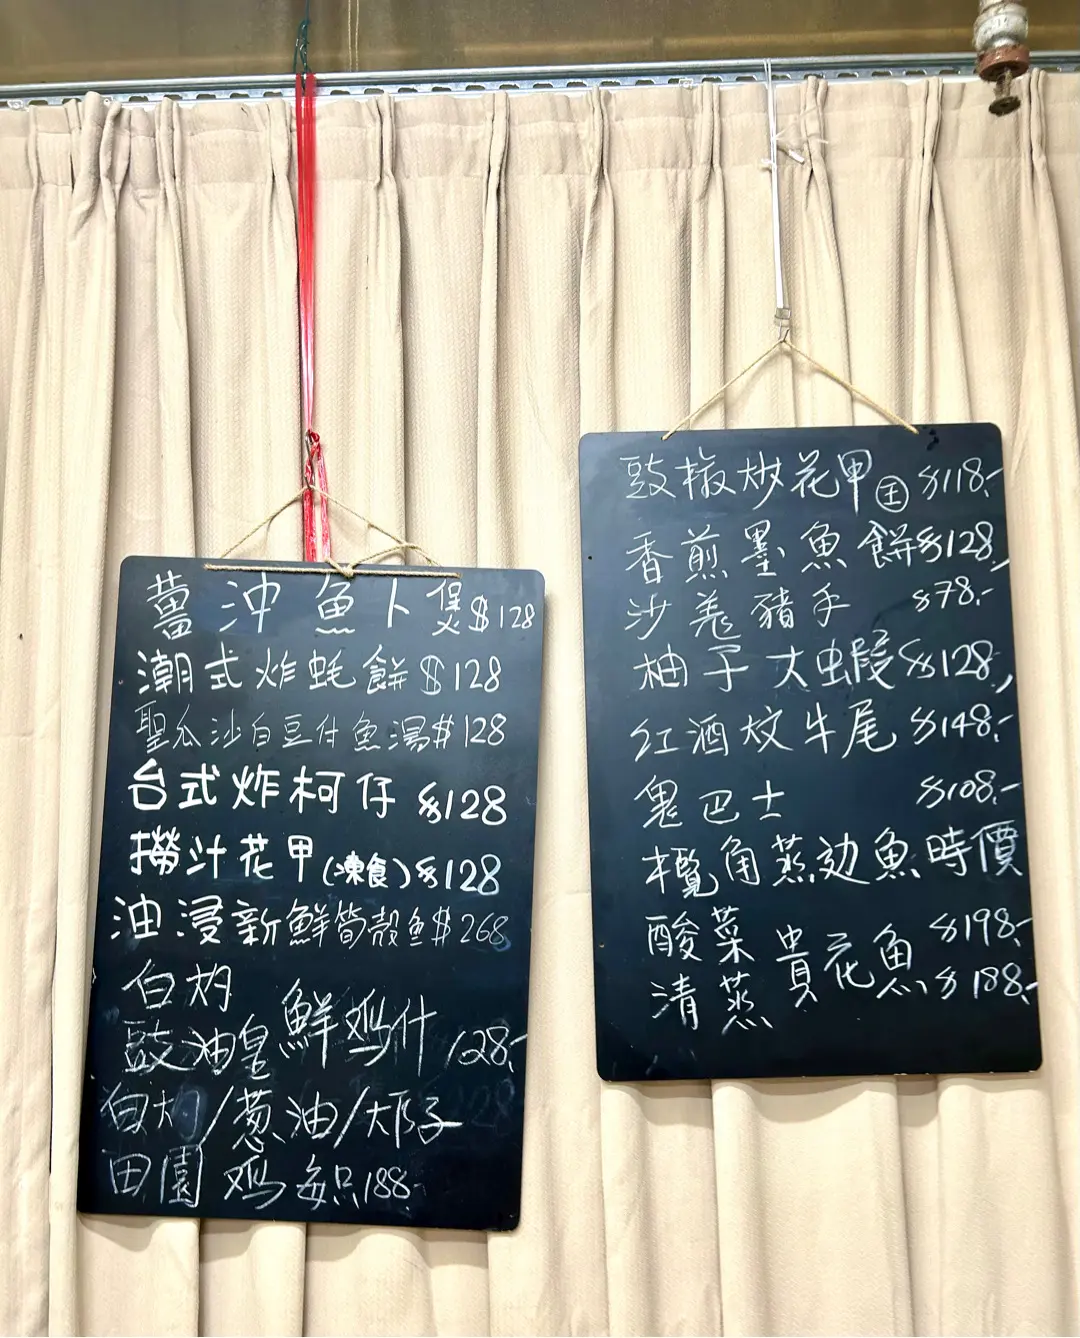 薑沖魚卜煲$128
潮式炸蚝餅$128
聖瓜沙白豆付魚湯$128
台式炸柯仔$128
撈汁花甲(凍食)$128
油浸新鮮筍殼魚$268
白灼
豉油皇 鮮鸡什 128.-
白灼/葱油/大阝子
田園鸡每只188-
豉椒炒花甲 $118.-
香煎墨魚餅$128.
沙羗豬手 $78.-
柚子大虫蝦$128.
红酒炆牛尾 $148.-
鬼巴士 $108.-
欖角蒸边魚時價
酸菜 $198.-
貴花魚
清蒸 $188.-